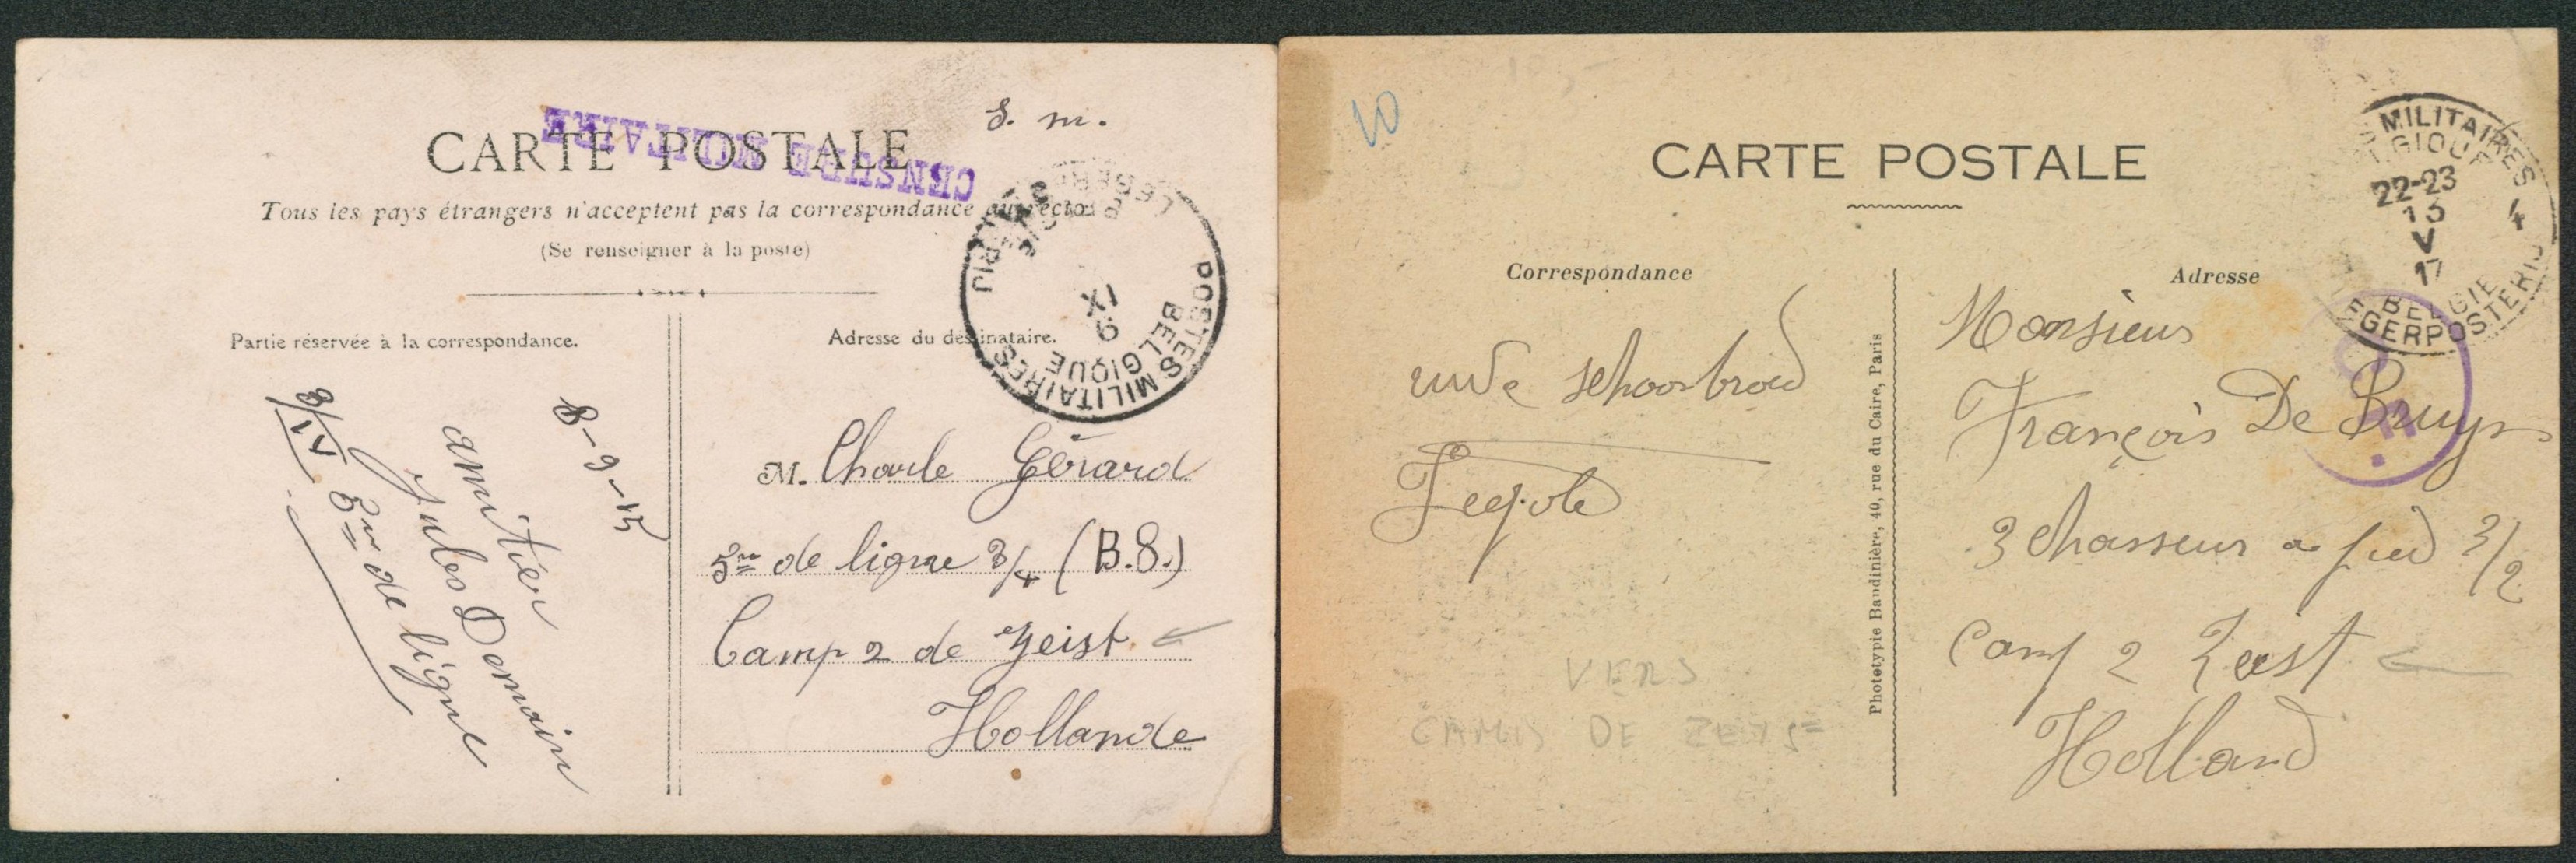 S. M.
CARTE POSTALE
CENSURE MILITAIRE
Tous les pays étrangers n'acceptent pas la correspondance au recto
(Se renseigner à la poste)
POSTES MILITAIRES
BELGIQUE
9
IX
Partie réservée à la correspondance.
Adresse du destinataire.
8-9-15
amitiér
Jules Demain
5me de ligne
3/IV
M. Charle Gérard
5me de ligne 3/4 (B.8.)
Camp 2 de Zeist
Hollande
10
CARTE POSTALE
MILITAIRES
22-23
13
V
17
4
BELGIE
LEGERPOSTERIJ
Correspondance
Adresse
Monsieur
François De Bruyn
3 chasseur a pied 3/2
Camp 2 Zeist
Holland
VERS
CAMP DE ZEIST
Photogypie Baudinière, 40, rue du Caire, Paris